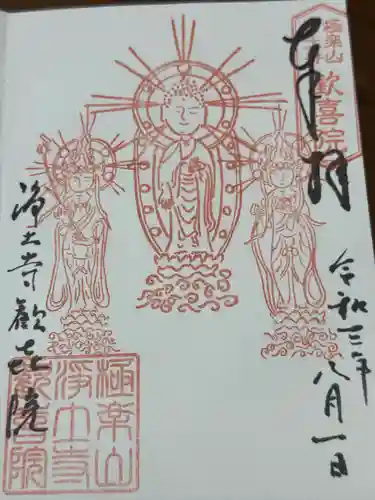 極楽山
歓喜院
奉拝
令和三年八月一日
浄土寺歡喜院
極楽山
浄土寺
歓喜院